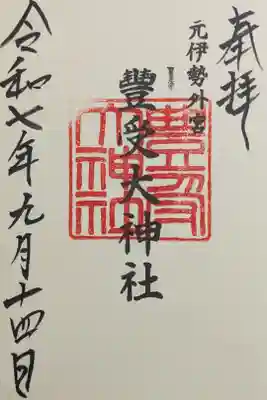 奉拝
元伊勢外宮
豐受大神社
令和七年九月十四日